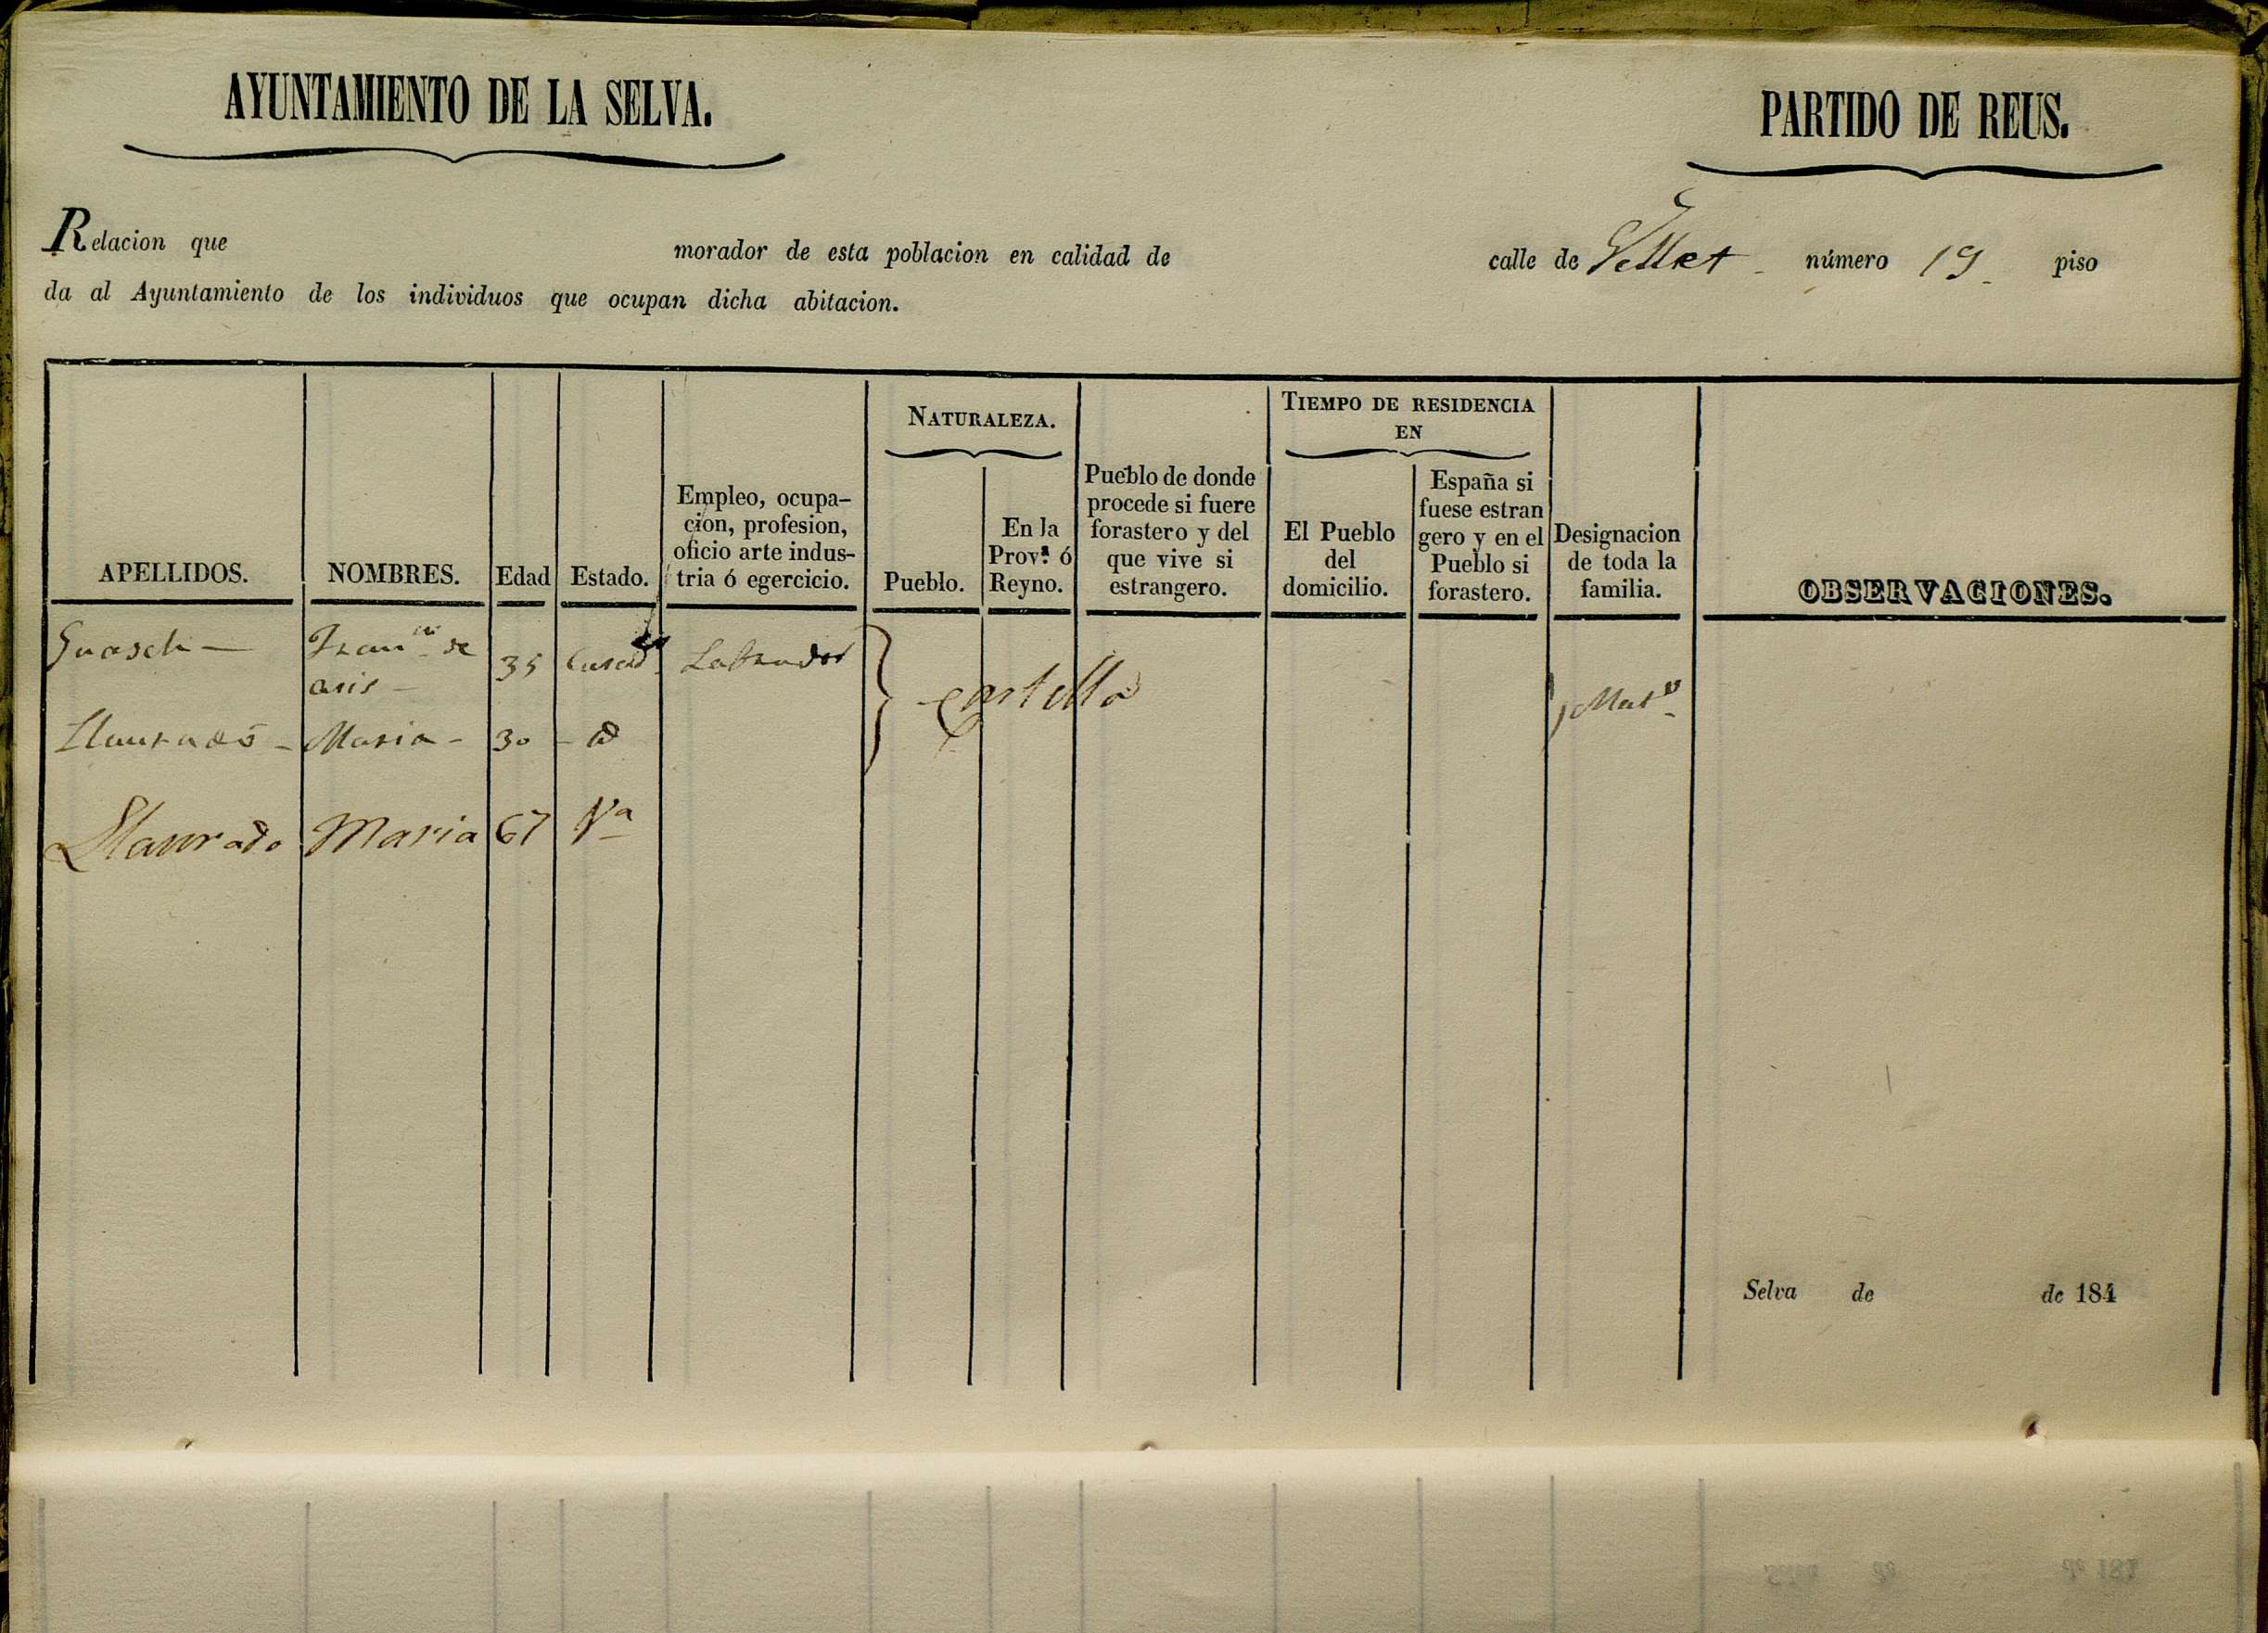 AYUNTAMIENTO DE LA SELVA.
PARTIDO DE REUS.
Relacion que morador de esta poblacion en calidad de calle de Vellet número 19 piso
da al Ayuntamiento de los individuos que ocupan dicha abitacion.
APELLIDOS.
NOMBRES.
Edad
Estado.
Empleo, ocupa-
cion, profesion,
oficio arte indus-
tria ó egercicio.
NATURALEZA.
Pueblo.
En la
Prov.ª ó
Reyno.
Pueblo de donde
procede si fuere
forastero y del
que vive si
estrangero.
TIEMPO DE RESIDENCIA
EN
El Pueblo
del
domicilio.
España si
fuese estran
gero y en el
Pueblo si
forastero.
Designacion
de toda la
familia.
OBSERVACIONES.
Guasch - Fran.co de 35 Casad Labrador
asis -
Castella
Mat.o
Llauradó - Maria - 30 - id
Llaurado Maria 67 Va
Selva de de 184